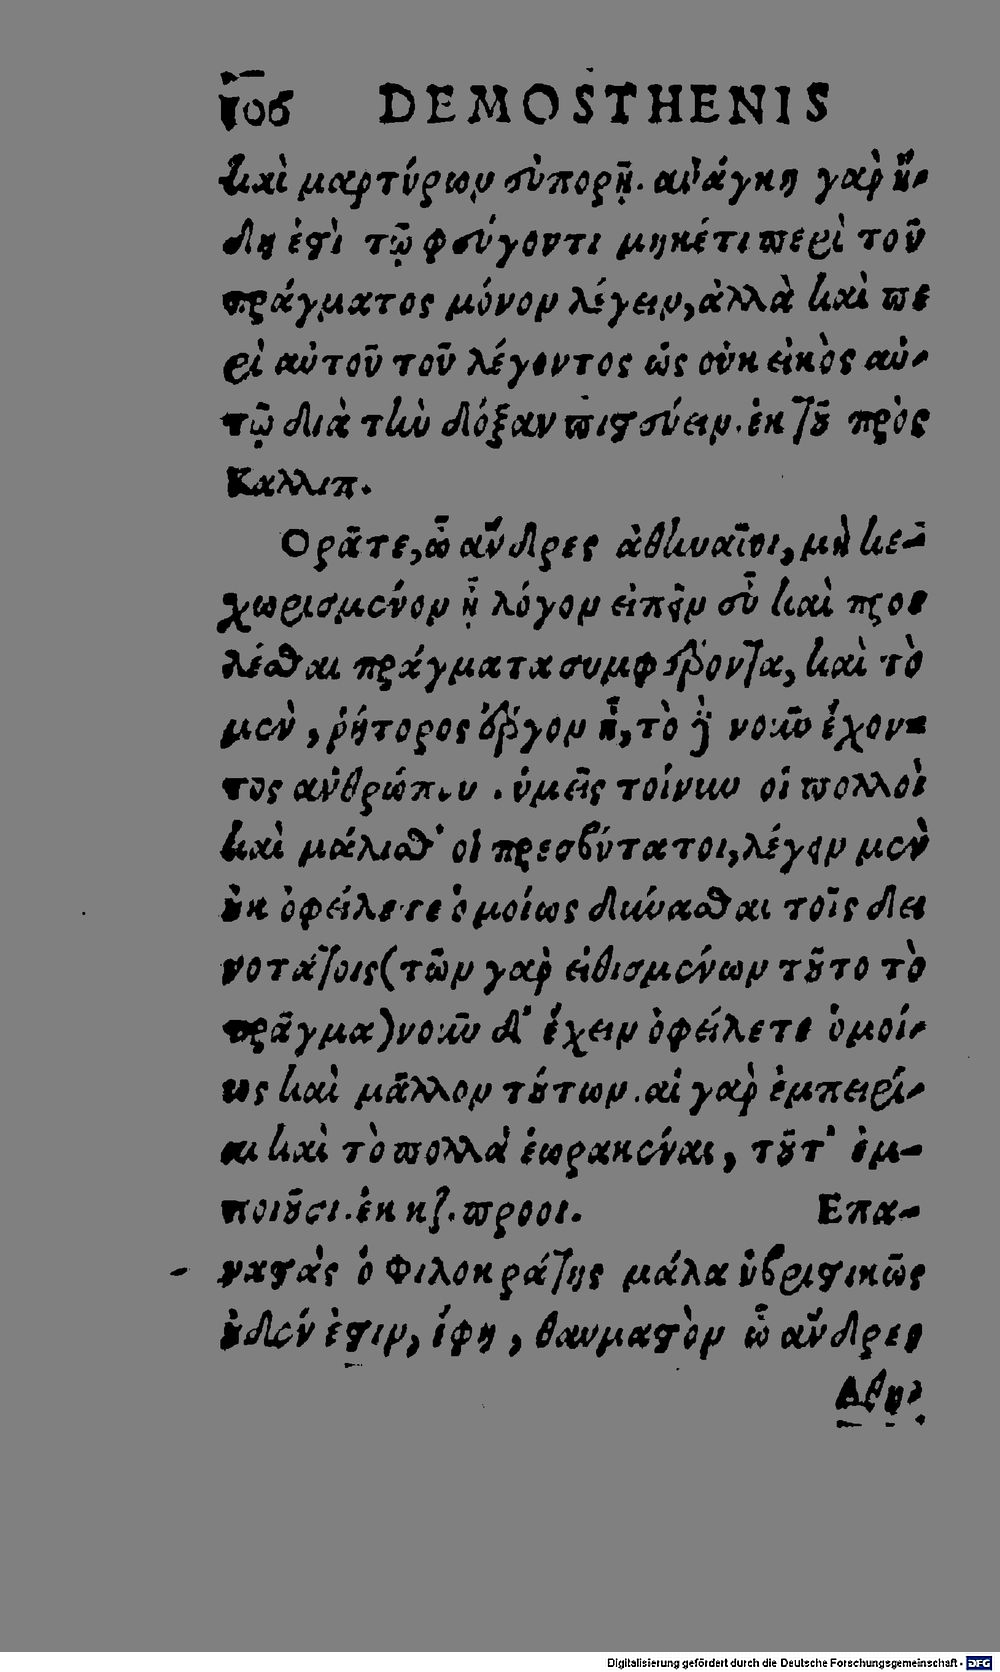 106 DEMOSTHENIS
καὶ μαρτύρων εὐπορῇ. ἀνάγκη γὰρ ἤ-
δη ἐστὶ τῷ φεύγοντι μηκέτι περὶ τοῦ
πράγματος μόνον λέγειν, ἀλλὰ καὶ πε
ρὶ αὐτοῦ τοῦ λέγοντος ὡς οὐκ εἰκὸς αὐ-
τῷ διὰ τὴν δόξαν πιστεύειν. ἐκ τοῦ πρὸς
Καλλιπ.
Ορᾶτε, ὦ ἄνδρες ἀθηναῖοι, μὴ κε-
χωρισμένον ᾖ λόγον εἰπεῖν εὖ καὶ προε
λέσθαι πράγματα συμφέροντα, καὶ τὸ
μὲν, ῥήτορος ἔργον ᾖ, τὸ δὲ νοῦν ἔχον-
τος ἀνθρώπου. ὑμεῖς τοίνυν οἱ πολλοὶ
καὶ μάλισθ' οἱ πρεσβύτατοι, λέγειν μὲν
οὐκ ὀφείλετε ὁμοίως δύνασθαι τοῖς δει
νοτάτοις (τῶν γὰρ εἰθισμένων τοῦτο τὸ
πρᾶγμα) νοῦν δ' ἔχειν ὀφείλετε ὁμοί-
ως καὶ μᾶλλον τούτων. αἱ γὰρ ἐμπειρί-
αι καὶ τὸ πολλὰ ἑωρακέναι, τοῦτ' ἐμ-
ποιοῦσι. ἐκ κζ. προοι. Επα-
ναστὰς ὁ Φιλοκράτης μάλα ὑβριστικῶς
οὐδέν ἐστιν, ἔφη, θαυμαστὸν ὦ ἄνδρες
Αθη-
Digitalisierung gefördert durch die Deutsche Forschungsgemeinschaft - DFG